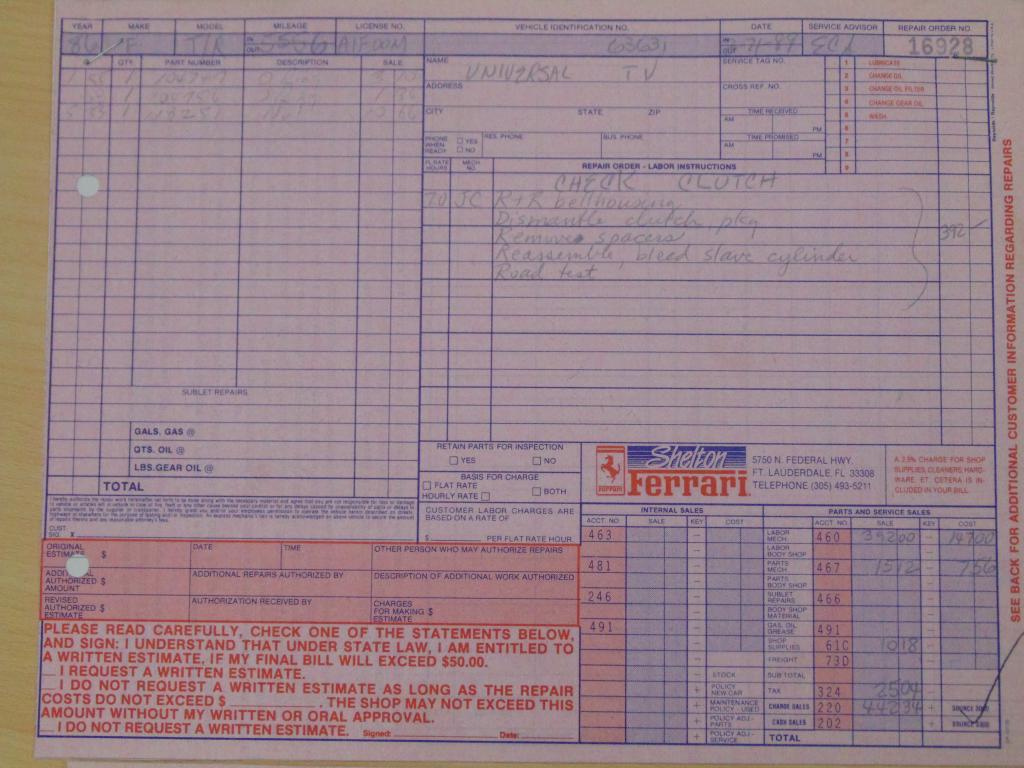 YEAR MAKE MODEL MILEAGE LICENSE NO. VEHICLE IDENTIFICATION NO. DATE SERVICE ADVISOR REPAIR ORDER NO.
86 F T/R IN OUT 5556 63631 IN OUT 16928
QTY. PART NUMBER DESCRIPTION SALE
NAME UNIVERSAL TV
ADDRESS
CITY STATE ZIP
PHONE WHEN READY YES NO RES. PHONE BUS. PHONE
SERVICE TAG NO.
CROSS REF. NO.
TIME RECEIVED
AM PM
TIME PROMISED
AM PM
1 LUBRICATE
2 CHANGE OIL
3 CHANGE OIL FILTER
4 CHANGE GEAR OIL
5 WASH
6
7
8
9
FL RATE HOURS MECH NO. REPAIR ORDER - LABOR INSTRUCTIONS
CHECK CLUTCH
7.0 JC R+R bellhousing
Dismantle clutch pkg
Remove spacers 392
Reassemble, bleed slave cylinder
Road test
SUBLET REPAIRS
GALS. GAS @
QTS. OIL @
LBS. GEAR OIL @
TOTAL
RETAIN PARTS FOR INSPECTION
YES NO
BASIS FOR CHARGE
FLAT RATE
HOURLY RATE BOTH
CUSTOMER LABOR CHARGES ARE
BASED ON A RATE OF
$ PER FLAT RATE HOUR
Shelton
Ferrari
5750 N. FEDERAL HWY.
FT. LAUDERDALE, FL 33308
TELEPHONE (305) 493-5211
A 2.5% CHARGE FOR SHOP
SUPPLIES, CLEANERS, HARD-
WARE, ET. CETERA IS IN-
CLUDED IN YOUR BILL.
CUST. SIG. X
ORIGINAL ESTIMATE $ DATE TIME OTHER PERSON WHO MAY AUTHORIZE REPAIRS
AUTHORIZED $ AMOUNT ADDITIONAL REPAIRS AUTHORIZED BY DESCRIPTION OF ADDITIONAL WORK AUTHORIZED
REVISED AUTHORIZED $ ESTIMATE AUTHORIZATION RECEIVED BY CHARGES FOR MAKING $ ESTIMATE
PLEASE READ CAREFULLY, CHECK ONE OF THE STATEMENTS BELOW,
AND SIGN: I UNDERSTAND THAT UNDER STATE LAW, I AM ENTITLED TO
A WRITTEN ESTIMATE, IF MY FINAL BILL WILL EXCEED $50.00.
I REQUEST A WRITTEN ESTIMATE.
I DO NOT REQUEST A WRITTEN ESTIMATE AS LONG AS THE REPAIR
COSTS DO NOT EXCEED $ . THE SHOP MAY NOT EXCEED THIS
AMOUNT WITHOUT MY WRITTEN OR ORAL APPROVAL.
I DO NOT REQUEST A WRITTEN ESTIMATE. Signed: Date:
INTERNAL SALES PARTS AND SERVICE SALES
ACCT. NO. SALE KEY COST ACCT. NO. SALE KEY COST
463 LABOR MECH 460 39200 14700
LABOR BODY SHOP
481 PARTS MECH 467 1512 756
PARTS BODY SHOP
246 SUBLET REPAIRS 466
BODY SHOP MATERIAL
491 GAS, OIL GREASE 491
SHOP SUPPLIES 61C 1018
FREIGHT 73D
STOCK SUB TOTAL
POLICY NEW CAR TAX 324 2504
MAINTENANCE POLICY - USED CHARGE SALES 220 44234
POLICY ADJ - PARTS CASH SALES 202
POLICY ADJ - SERVICE TOTAL
SEE BACK FOR ADDITIONAL CUSTOMER INFORMATION REGARDING REPAIRS